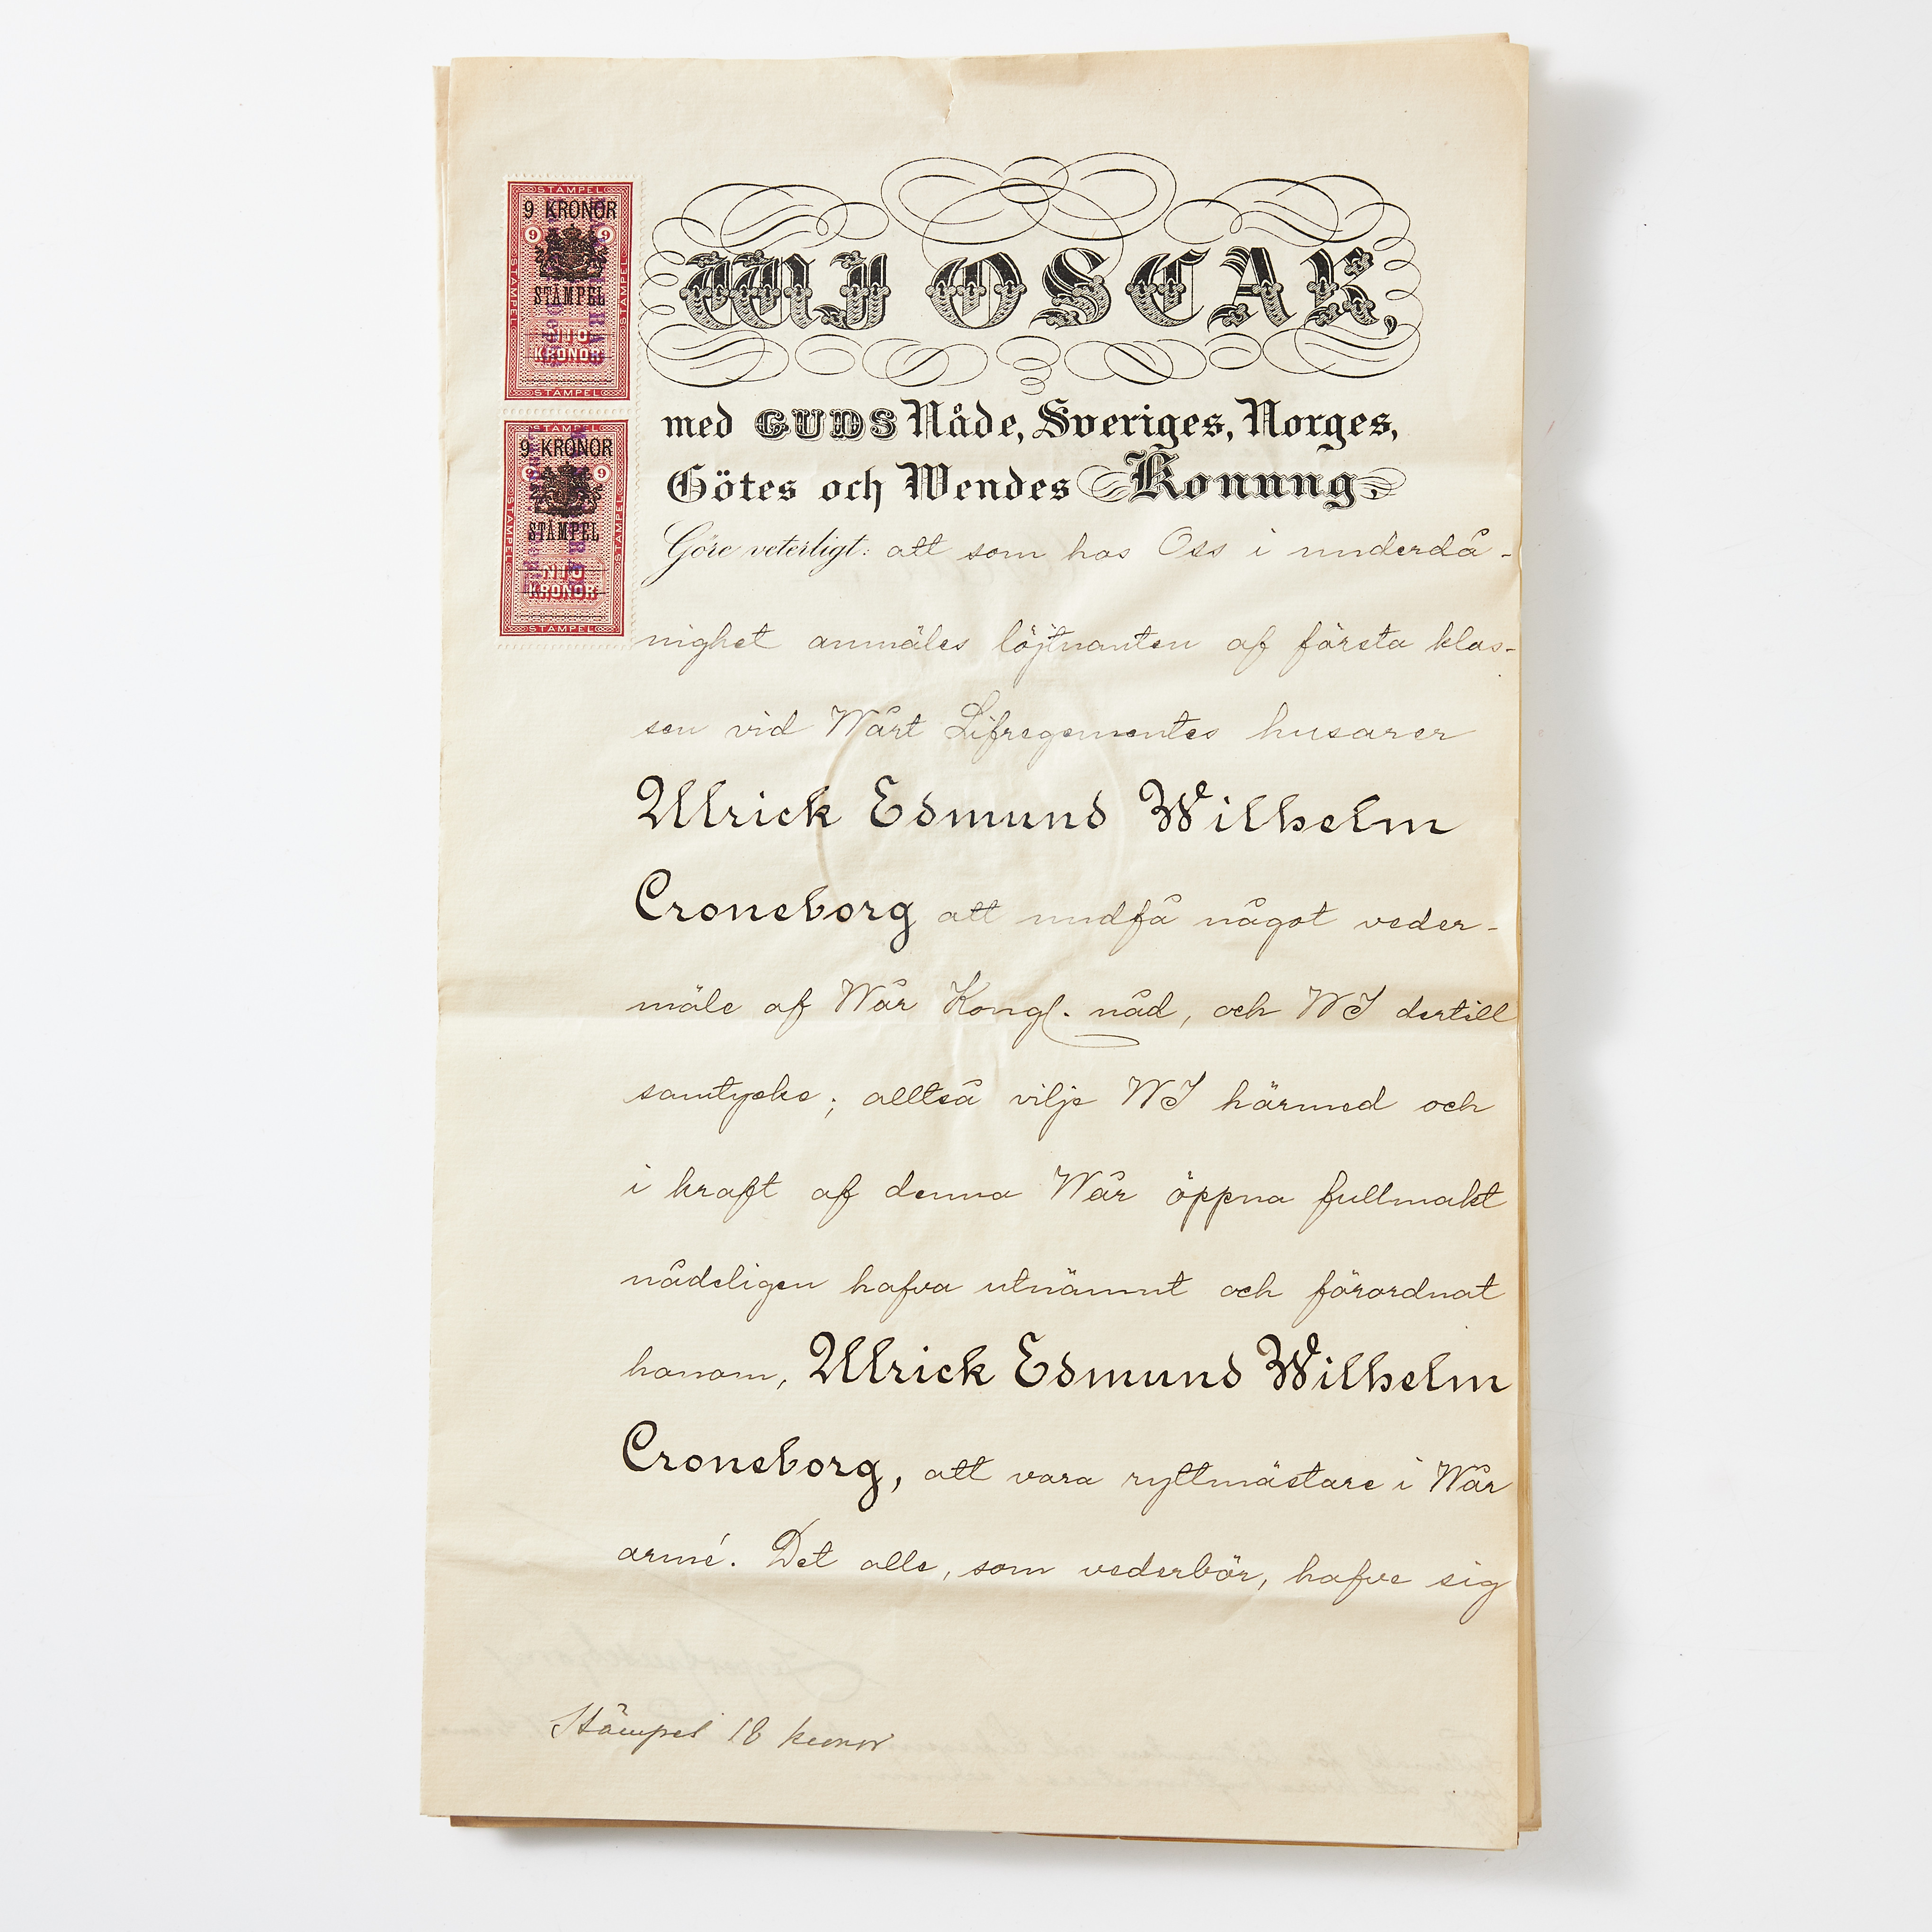 STÄMPEL
9 KRONOR
9 9
STÄMPEL
NIO
KRONOR
STÄMPEL
STÄMPEL
9 KRONOR
9 9
STÄMPEL
NIO
KRONOR
STÄMPEL
WJ OSCAR,
med GUDS Nåde, Sveriges, Norges,
Götes och Wendes Konung,
Göre veterligt: att som hos Oss i underdå-
nighet anmäles löjtnanten af första klas-
sen vid Wårt Lifregementes husarer
Ulrick Edmund Wilhelm
Croneborg att undfå något veder-
mäle af Wår Kongl. nåd, och WJ dertill
samtycke; alltså vilje WJ härmed och
i kraft af denna Wår öppna fullmakt
nådeligen hafva utnämnt och förordnat
honom, Ulrick Edmund Wilhelm
Croneborg, att vara ryttmästare i Wår
armé. Det alle, som vederbör, hafve sig
Stämpel 18 kronor